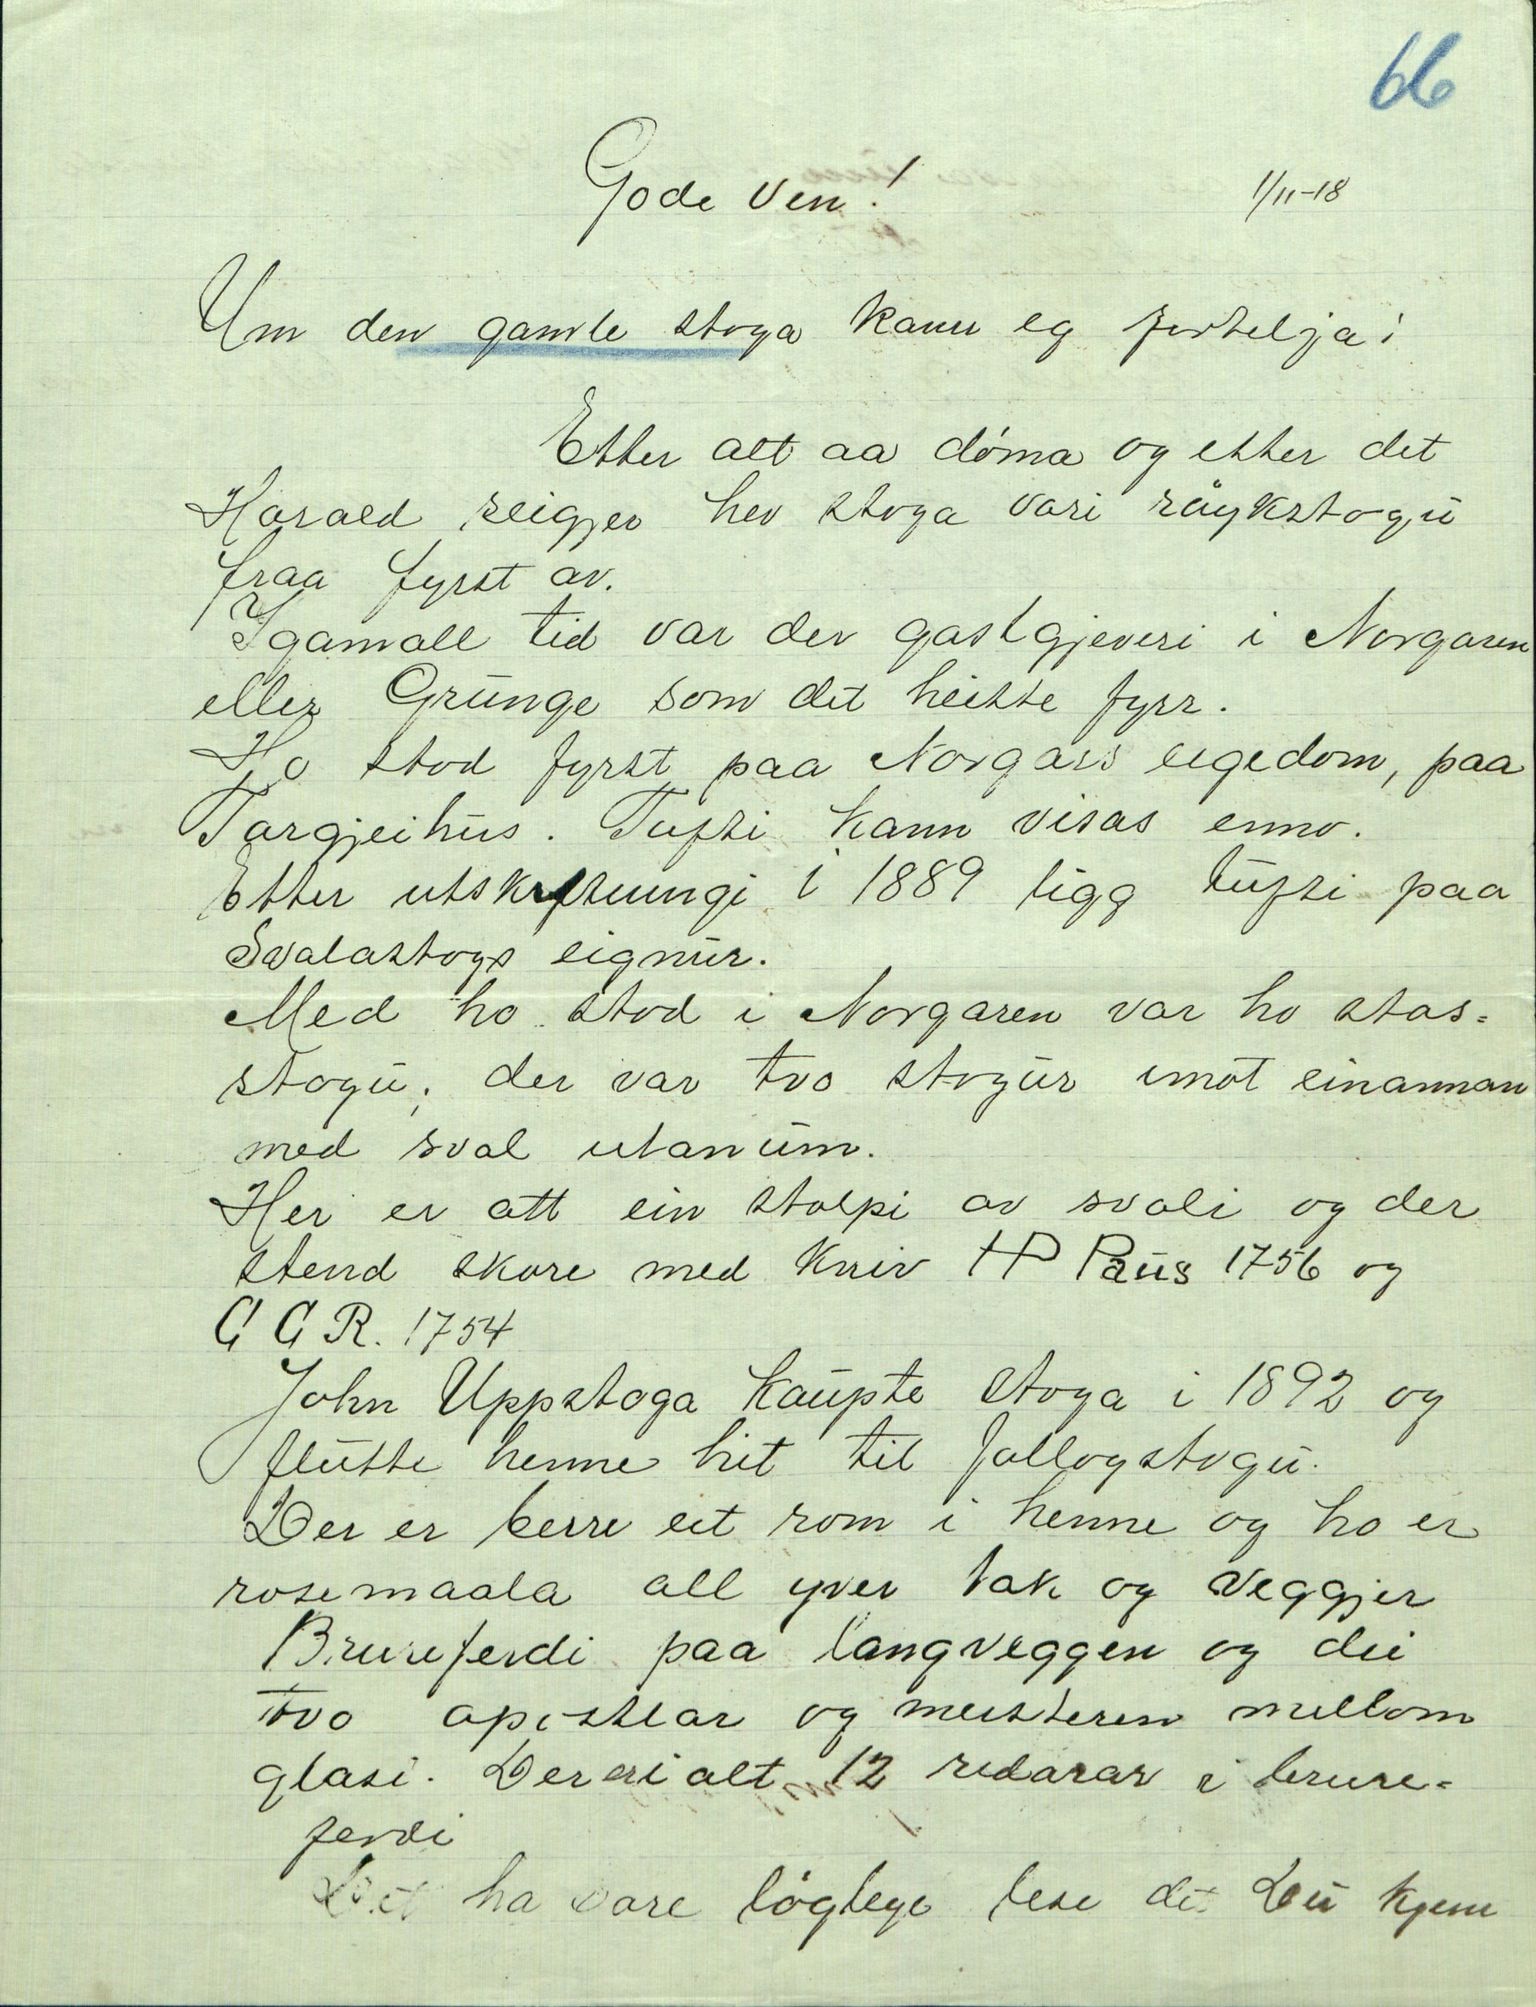 66
Gode ven!
1/11-18
Um den gamle stoga kann eg fortelja:
Etter alt aa döma og etter det
Harald seigjer hev stoga vari röykstogu
fraa fyrst av.
I gamall tid var der gastgjeveri i Norgaren
eller Grunge som det heitte fyrr.
Ho stod fyrst paa Norgars eigedom, paa
Targjeihus. Tufti kann visas enno.
Etter utskiftningi i 1889 ligg tufti paa
Svalastogs eignur.
Med ho stod i Norgaren var ho stas-
stogu; der var tvo stogur imot einannan
med sval utanum.
Her er att ein stolpi av svali og der
stend skore med kniv HP Paus 1756 og
G G R. 1754
John Uppstoga kaupte stoga i 1892 og
flutte henne hit til follogstogu.
Der er berre eit rom i henne og ho er
rosemaala all yver tak og veggjer
Brureferdi paa langveggen og dei
tvo apostlar og meisteren millom
glasi. Der er i alt 12 ridarar i brure-
ferdi
Det ha vore löglege lese det Du kjem